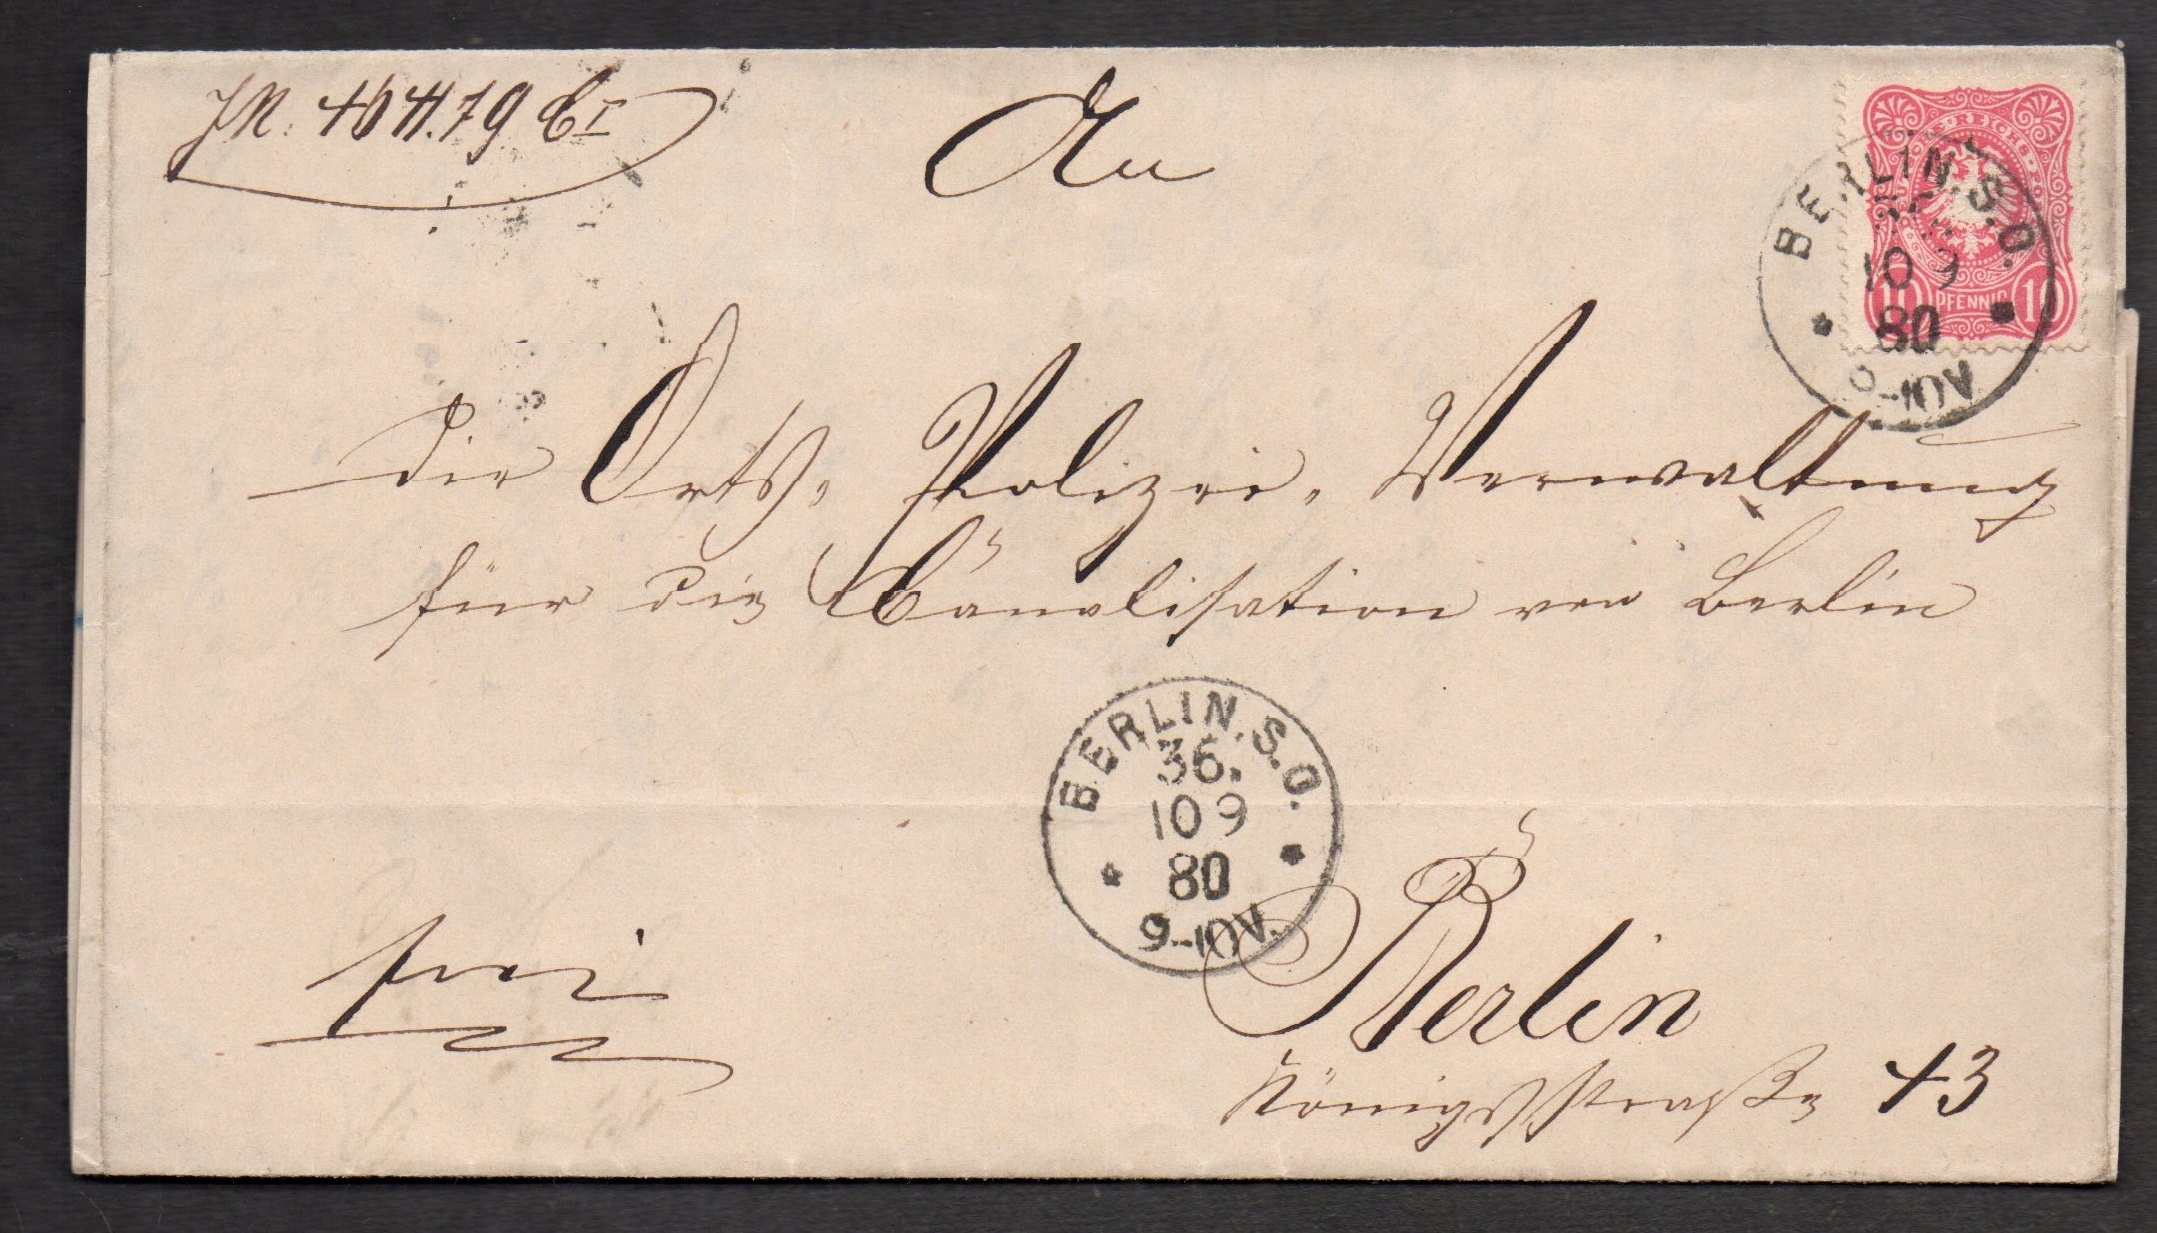 An
REICHS
10 PFENNIG 10
BERLIN.S.O.
10 9
80
9-10V
die Orts-Polizei-Verwaltung
für die Canalisation von Berlin
BERLIN.S.O.
36.
10 9
80
9-10V.
frei
Berlin
Königsstraße 43